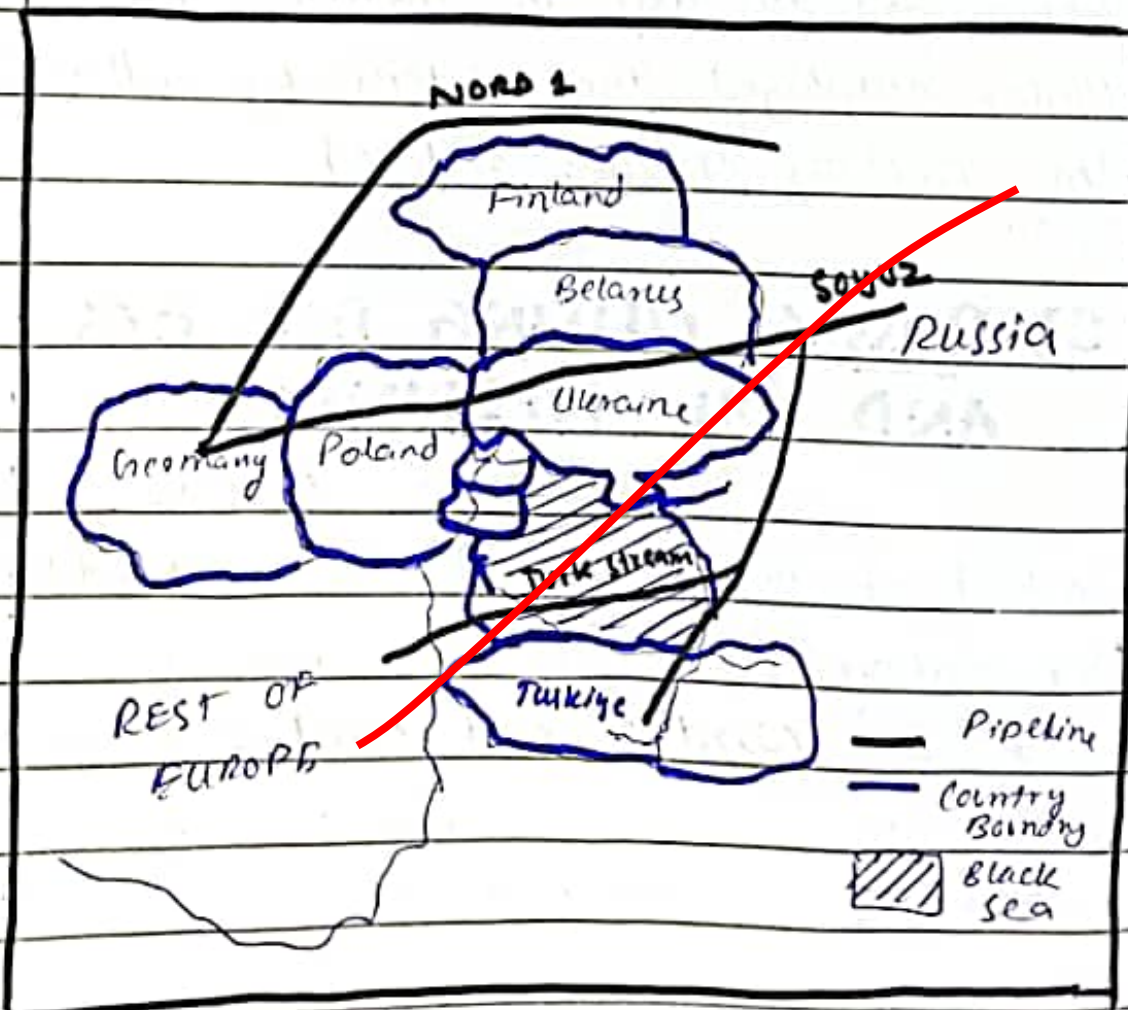 NORD 1
Finland
Belarus
SOYUZ
Russia
Ukraine
Germany
Poland
Turk Stream
REST OF
EUROPE
Turkiye
Pipeline
Country
Boundry
Black
Sea